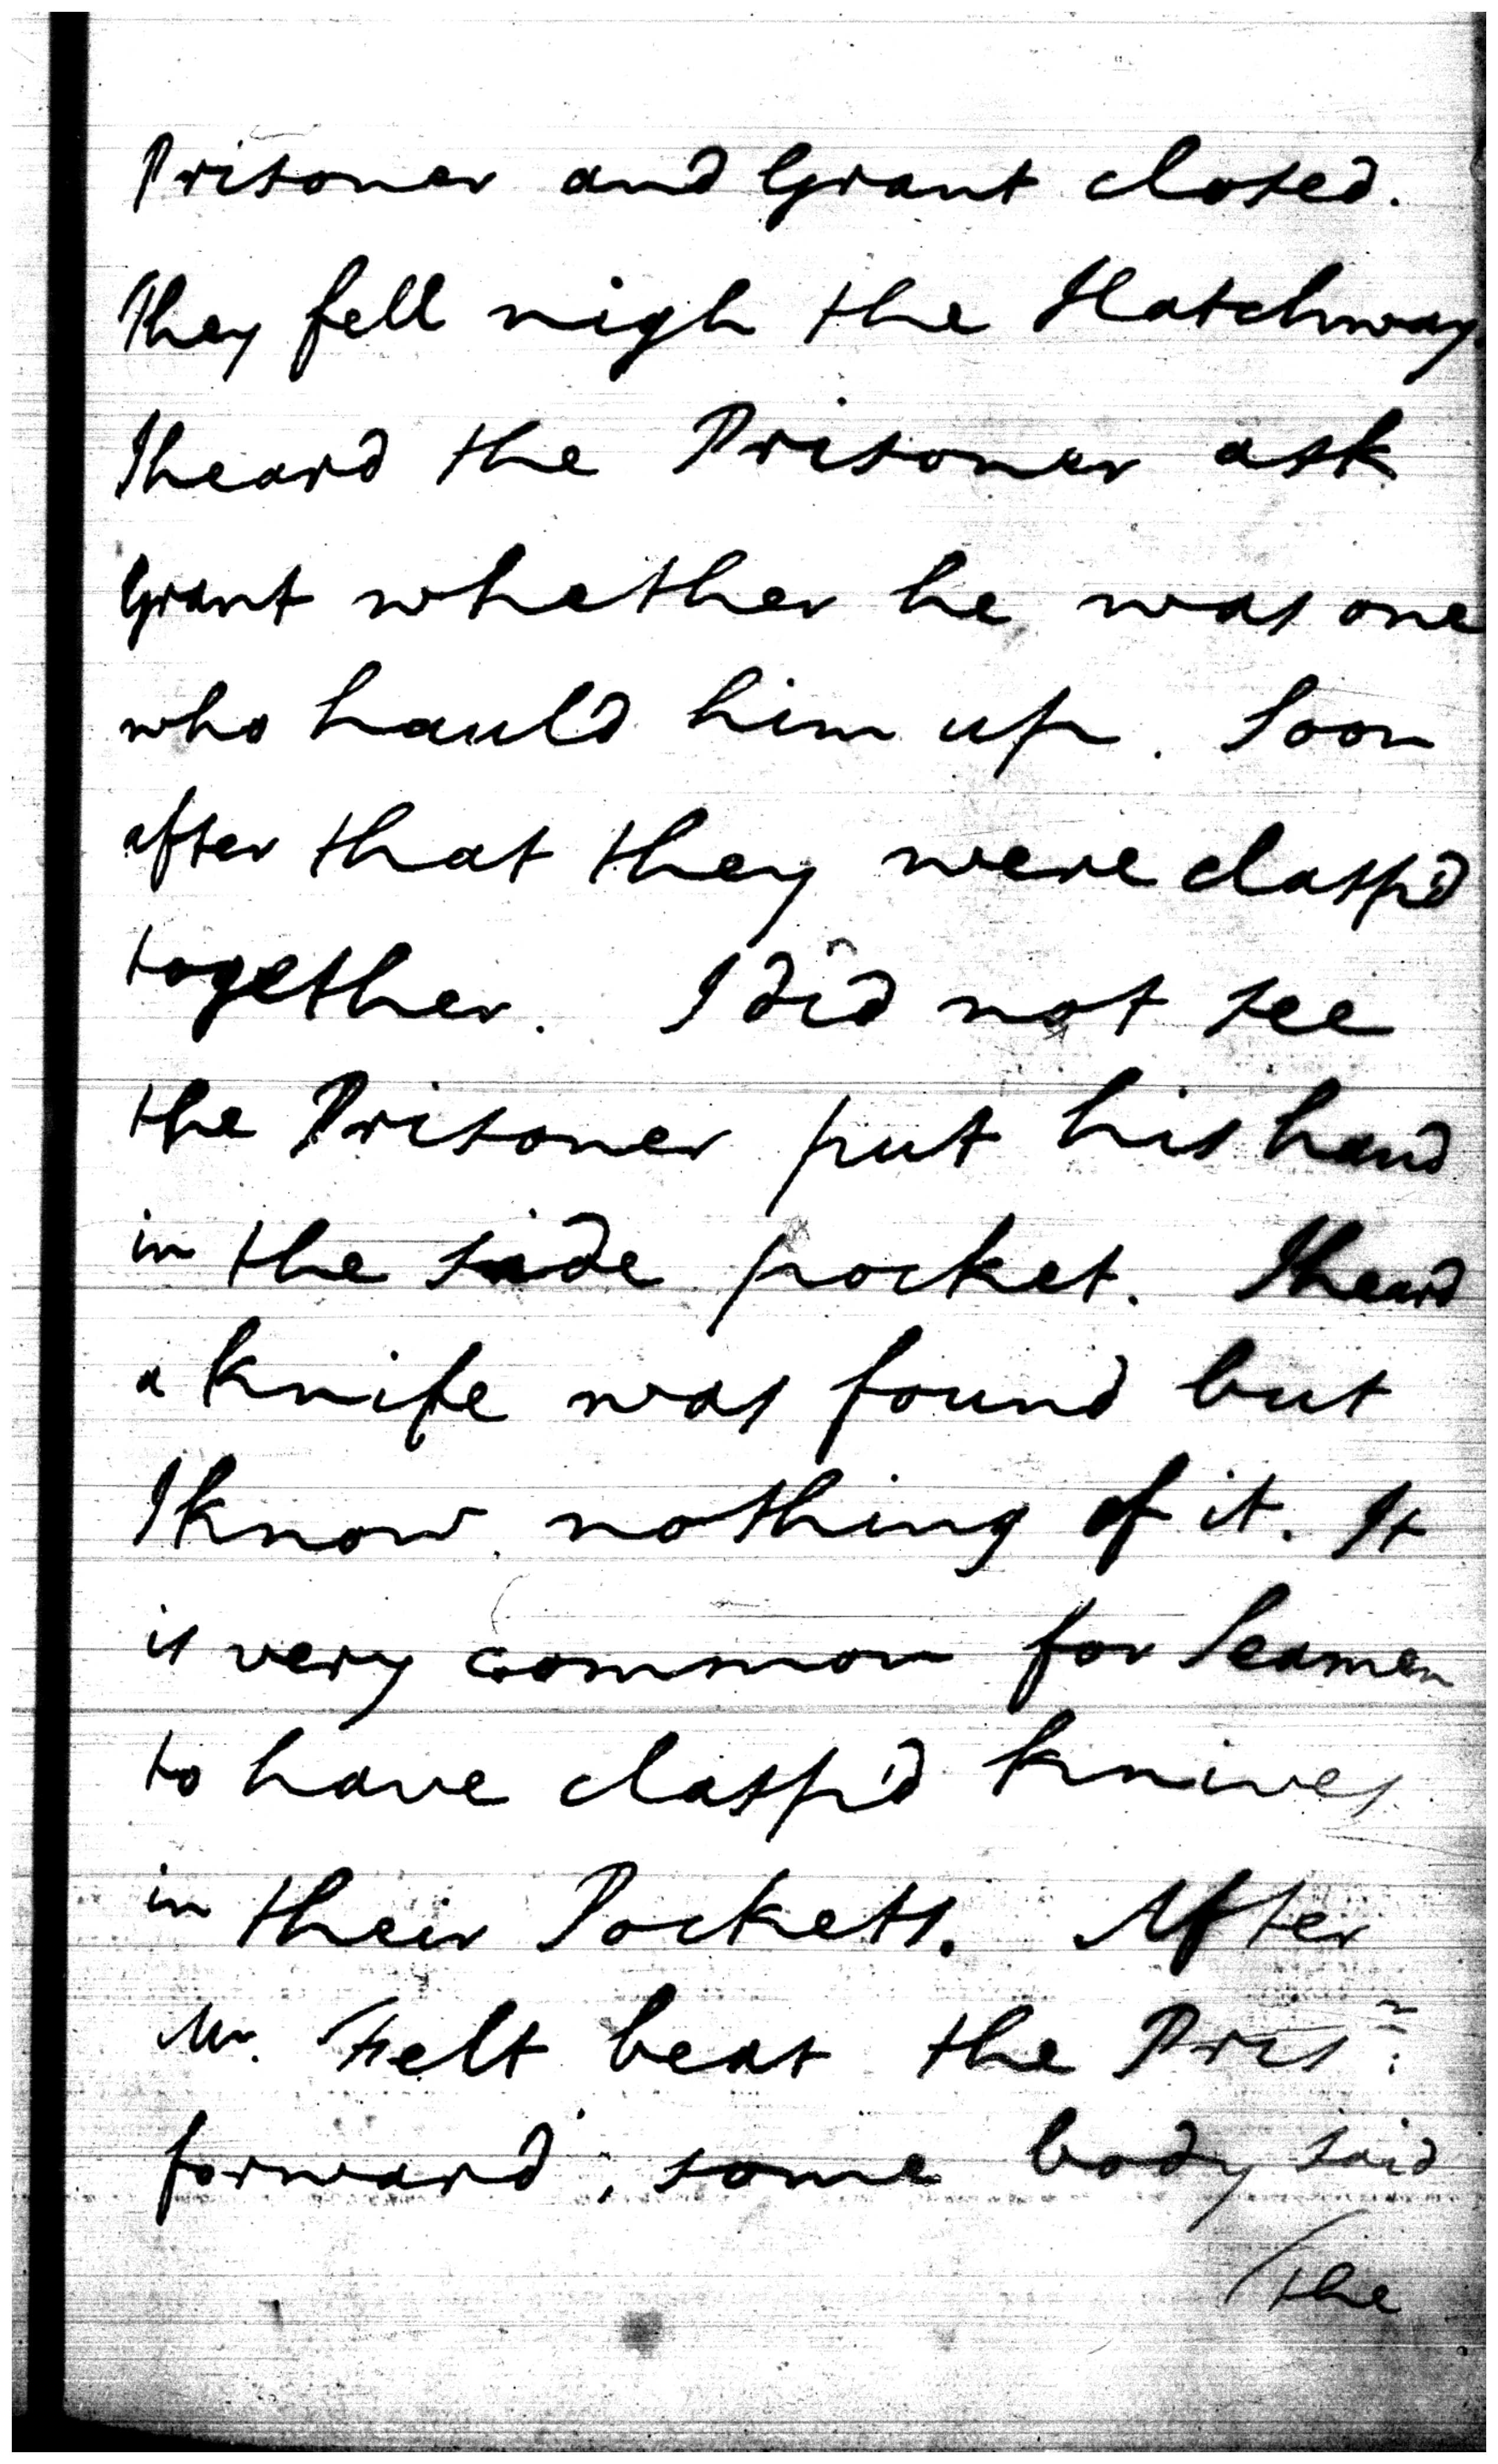 Prisoner and Grant closed.
They fell nigh the Hatchway.
I heard the Prisoner ask
Grant whether he was one
who hauld him up. Soon
after that they were clasp'd
together. I did not see
the Prisoner put his hand
in the side pocket. I heard
a knife was found but
I know nothing of it. It
is very common for Seamen
to have clasp'd knives
in their Pockets. After
Mr. Felt beat the Prisr.
forward, some body said
/the